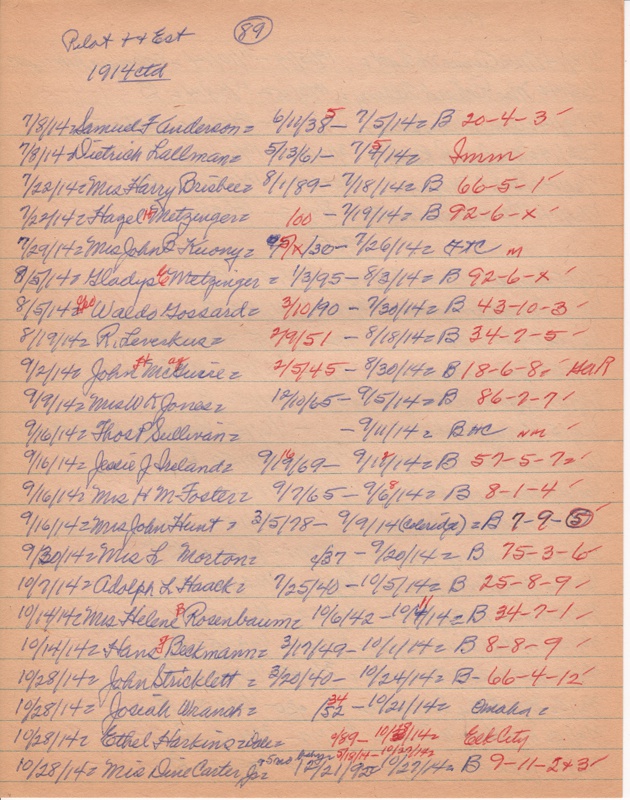 Pilot ++ Est (89)
1914 ctd
7/8/14= Samuel F Anderson= 6/11/38 5 – 7/5/14= B 20-4-3 ✓
7/8/14= Dietrich Lallman= 5/13/61 – 7/5/14= Imm
7/22/14= Mrs Harry Brisbee= 8/1/89 – 7/18/14= B 66-5-1 ✓
7/22/14= Hazel H Metzinger= 100 – 7/19/14= B 92-6-x ✓
7/29/14= Mrs John B Kuony= 5/x/30 – 7/26/14= FtC M
8/5/14= Gladys Metzinger = 1/3/95 – 8/3/14= B 92-6-x ✓
8/5/14= Geo Waldo Gossard= 3/10/90 – 7/30/14= B 43-10-3 ✓
8/19/14= R. Leverkus= 2/9/51 – 8/18/14= B 34-7-5 ✓
9/2/14= John McGuire= 2/5/45 – 8/30/14= B 18-6-8 ✓ HAR
9/9/14= Mrs W D Jones= 12/10/65 – 9/5/14= B 86-7-7 ✓
9/16/14= Thos P Sullivan= – 9/11/14= B HC NM ✓
9/16/14= Jessie J Ireland= 9/19/69 – 9/12/14= B 57-5-7 ✓
9/16/14= Mrs H M Foster= 9/7/65 – 9/6/14= B 8-1-4 ✓
9/16/14= Mrs John Hunt = 3/5/78 – 9/9/14 (Coleridge) = B 7-9-(5) ✓
9/30/14= Mrs L Morton= c/37 – 9/20/14= B 75-3-6 ✓
10/7/14= Adolph L Haack= 7/25/40 – 10/5/14= B 25-8-9 ✓
10/14/14= Mrs Helene B Rosenbaum= 10/6/42 – 10/11/14= B 34-7-1 ✓
10/14/14= Hans J Beckmann= 3/17/49 – 10/11/14= B 8-8-9 ✓
10/28/14= John Stricklett = 3/20/40 – 10/24/14= B – 66-4-12 ✓
10/28/14= Josiah Wranch= /52 34 – 10/21/14= Omaha =
10/28/14= Ethel Harkins= 9/89 – 10/18/14= Elk City
10/28/14= Mrs Dine Carter, Jr= 12/21/92 – 10/27/14= B 9-11-2+3 ✓